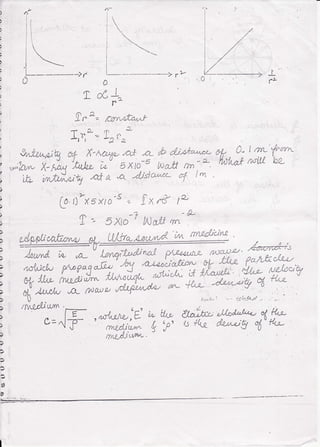 O r O r² O 1/r²
I ∝ 1/r²
Ir² = constant
I₁r₁² = I₂r₂²
Intensity of X-rays at a distance of 0.1 m from
an X-ray tube is 5 X10⁻⁵ Watt m⁻². What will be
its intensity at a distance of 1m.
(0.1)² x 5 x 10⁻⁵ = I x 1²
I = 5 X10⁻⁷ Watt m⁻²
Applications of Ultra sound in medicine
Sound is a longitudinal pressure wave. Sound is
which propagates by association of the particles
of the medium through which it travels. The velocity
of such a wave depends on the density of the
medium.
C = √E/ρ , where, 'E' is the Elastic Modulus of the
medium & 'ρ' is the density of the
medium.